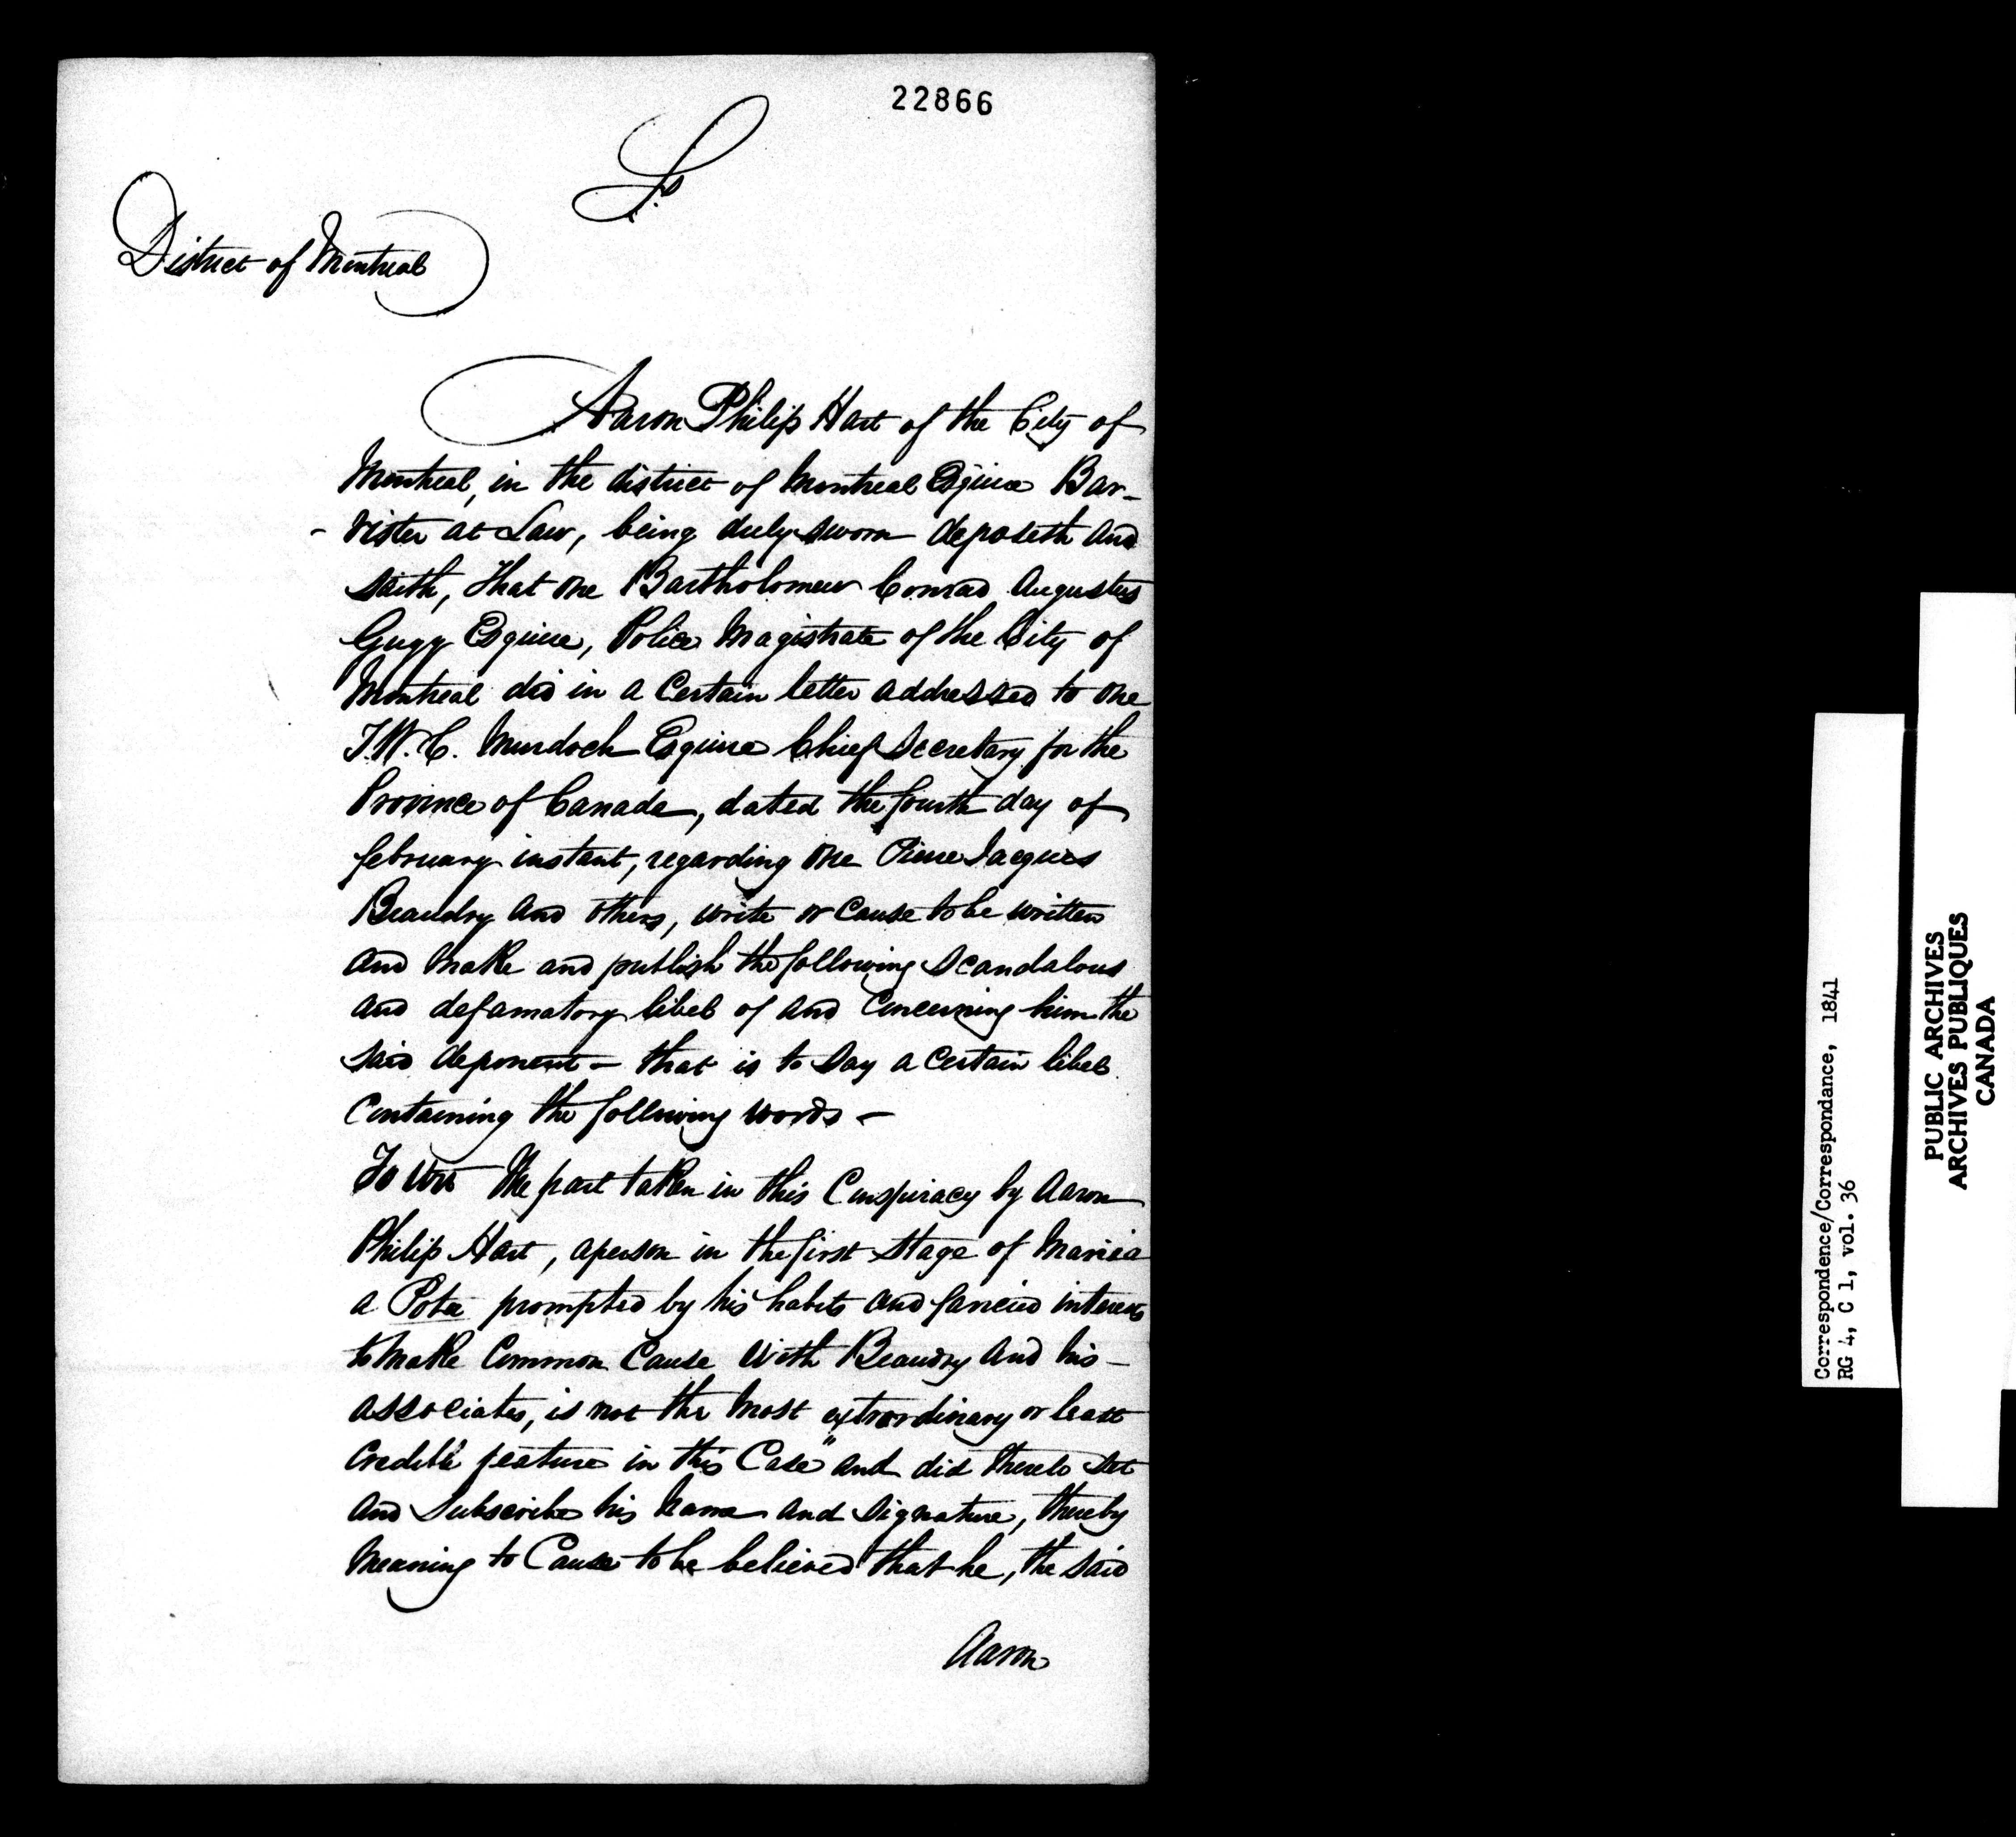 22866
Ss
District of Montreal
Aaron Philip Hart of the City of
Montreal, in the district of Montreal Esquire Bar-
-rister at Law, being duly sworn deposeth and
saith, that one Bartholomew Conrad Augustus
Gugy Esquire, Police Magistrate of the City of
Montreal did in a Certain letter addressed to one
T.W.C. Murdoch Esquire Chief Secretary for the
Province of Canada, dated the fourth day of
february instant, regarding one Pierre Jacques
Beaudry and others, write or cause to be written
and make and publish the following scandalous
and defamatory libel of and concerning him the
said deponent - that is to say a certain libel
containing the following words -
To Wit The part taken in this Conspiracy by Aaron
Philip Hart, a person in the first stage of Mania
a Potu prompted by his habits and fancied interests
to make Common Cause with Beaudry and his -
associates, is not the most extrordinary or least
credible feature in this Case" and did thereto set
and subscribe his name and signature, thereby
meaning to Cause to be believed that he, the said
Aaron
Correspondence/Correspondance, 1841
RG 4, C 1, vol. 36
PUBLIC ARCHIVES
ARCHIVES PUBLIQUES
CANADA